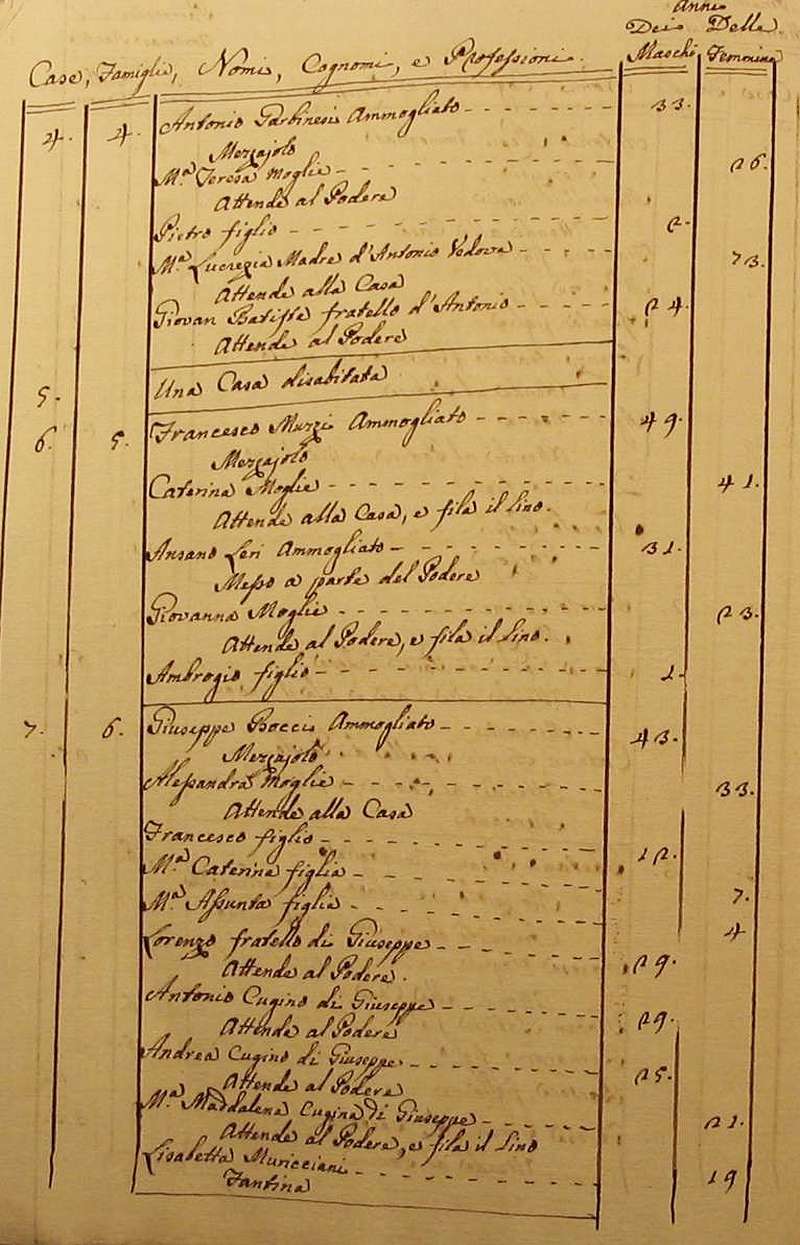 Anni
Dei Delle
Case, Famiglie, Nomi, Cognomi, e Professioni. Maschi Femmine
4. 4. Antonio Garbinesi Ammogliato 33.
Mezzajolo
M.a Teresa Moglie 26.
Attende al Podere
Pietro figlio 2.
M.a Lucrezia Madre d'Antonio Vedova 73.
Attende alla Casa
Giovan Batista fratello d'Antonio 24.
Attende al Podere
5. Una Casa disabitata
6. 5. Francesco Muzzi Ammogliato 49.
Mezzajolo
Caterina Moglie 41.
Attende alla Casa, e fila il Lino.
Ansano Leri Ammogliato 31.
Messo a parte del Podere
Giovanna Moglie 23.
Attende al Podere, e fila il Lino.
Ambrogio figlio 1.
7. 6. Giuseppe Bocci Ammogliato 43.
Mezzajolo
Alessandra Moglie 33.
Attende alla Casa
Francesco figlio 12.
M.a Caterina figlia 7.
M.a Assunta figlia 4
Lorenzo fratello di Giuseppe 29.
Attende al Podere.
Antonio Cugino di Giuseppe 29.
Attende al Podere
Andrea Cugino di Giuseppe 25.
Attende al Podere
M.a Maddalena Cugina di Giuseppe 21.
Attende al Podere, e fila il Lino
Lisabetta Muricciani 19
Fantina